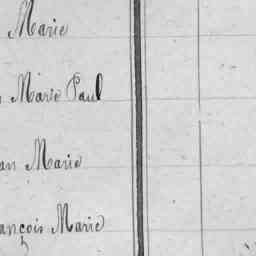 Marie
Marie Paul
an Marie
ançois Marie